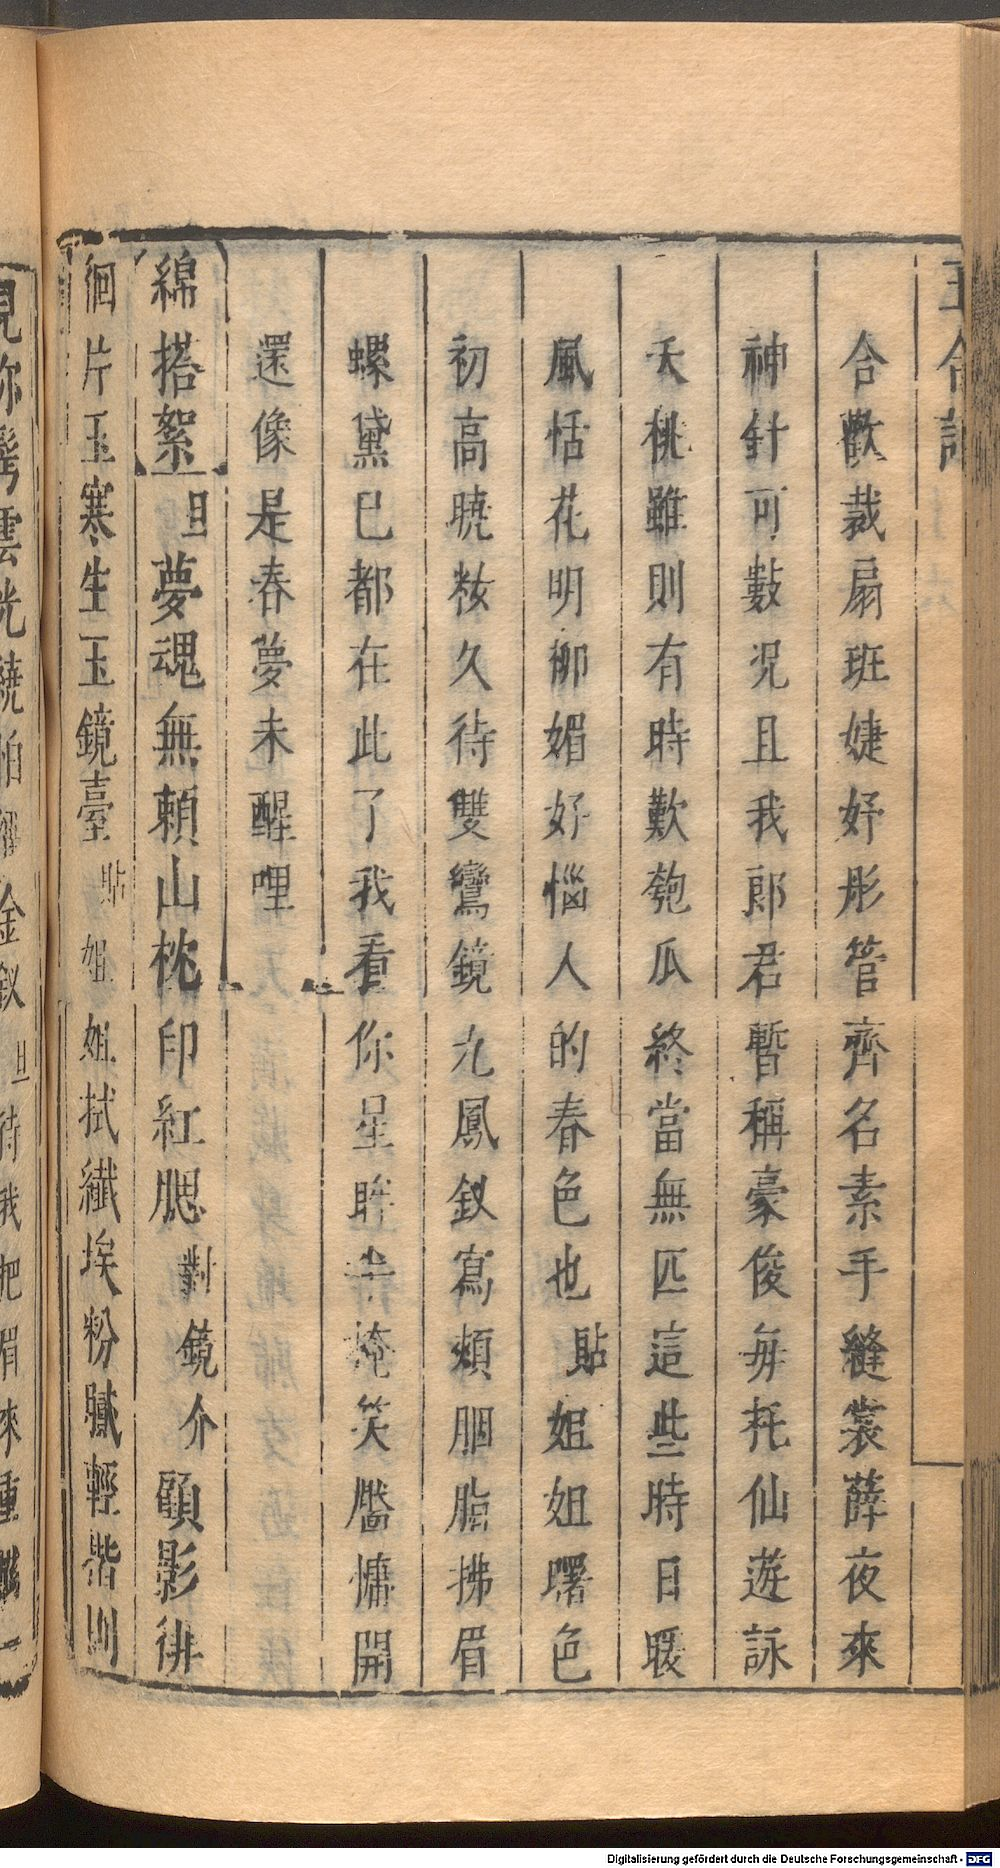 合歡裁扇班婕妤彤管齊名素手縫裳薛夜來
神針可數况且我郎君暫稱豪俊每托仙遊詠
夭桃雖則有時歎匏瓜終當無匹這些時日暖
風恬花明柳媚好惱人的春色也貼姐姐曙色
初高曉粧久待雙鸞鏡九鳳釵寫頰胭脂拂眉
螺黛已都在此了我看你星眸半掩笑靨慵開
還像是春夢未醒哩
綿搭絮旦夢魂無賴山枕印紅腮對鏡介顧影徘
徊片玉寒生玉鏡臺貼姐姐拭纖埃粉膩輕揩
見你雲光繞怕金釵旦待我把眉來重
Digitalisierung gefördert durch die Deutsche Forschungsgemeinschaft - DFG